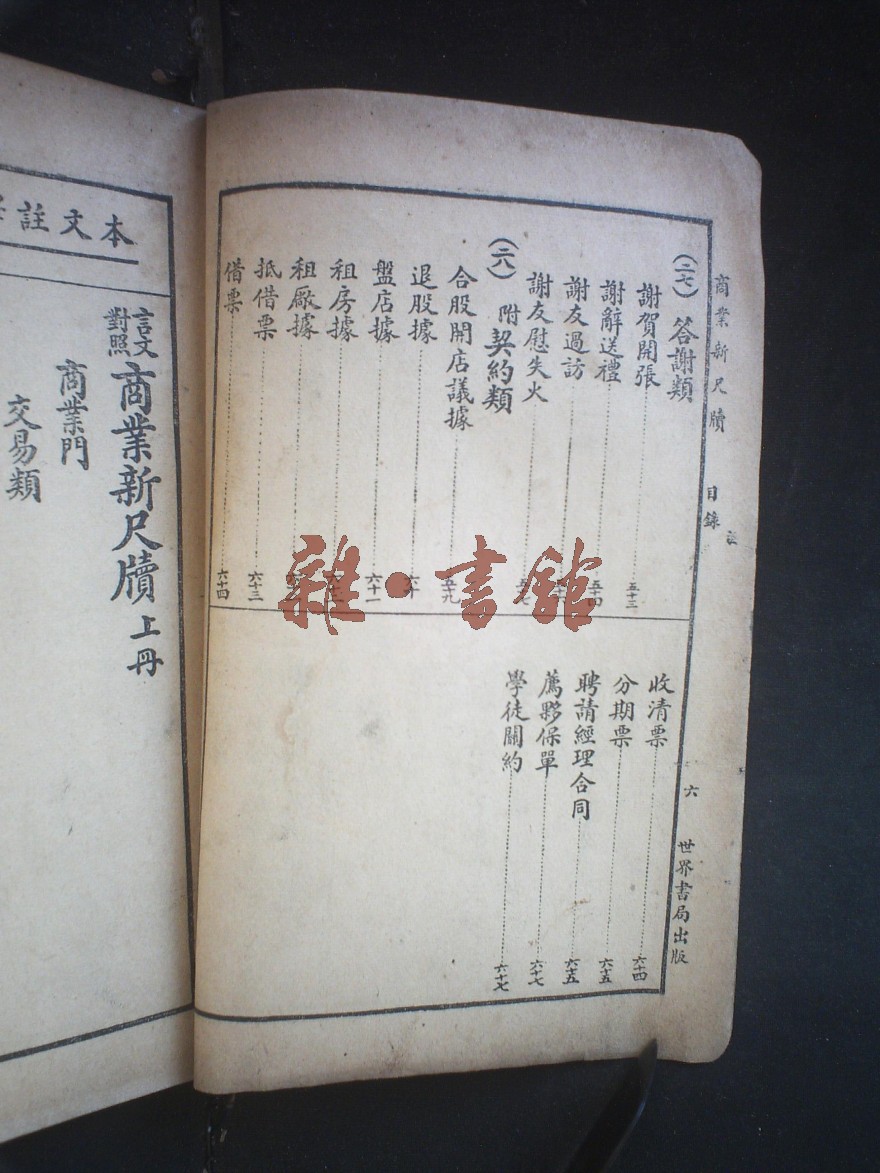 商業新尺牘
目錄
六
世界書局出版
(二七) 答謝類
謝賀開張 五十三
謝辭送禮 五十四
謝友過訪
謝友慰失火
(二八) 附契約類
合股開店議據 五十九
退股據 六十
盤店據 六十一
租房據
租廠據
抵借票 六十三
借票 六十四
收清票 六十四
分期票 六十五
聘請經理合同 六十五
薦夥保單 六十七
學徒關約 六十七
本文註
言文對照 商業新尺牘 上冊
商業門
交易類
雜·書館